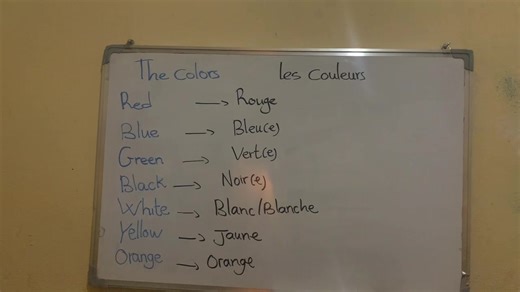 The Colors les Couleurs
Red → Rouge
Blue → Bleu(e)
Green → Vert(e)
Black → Noir(e)
White → Blanc/Blanche
Yellow → Jaune
Orange → Orange